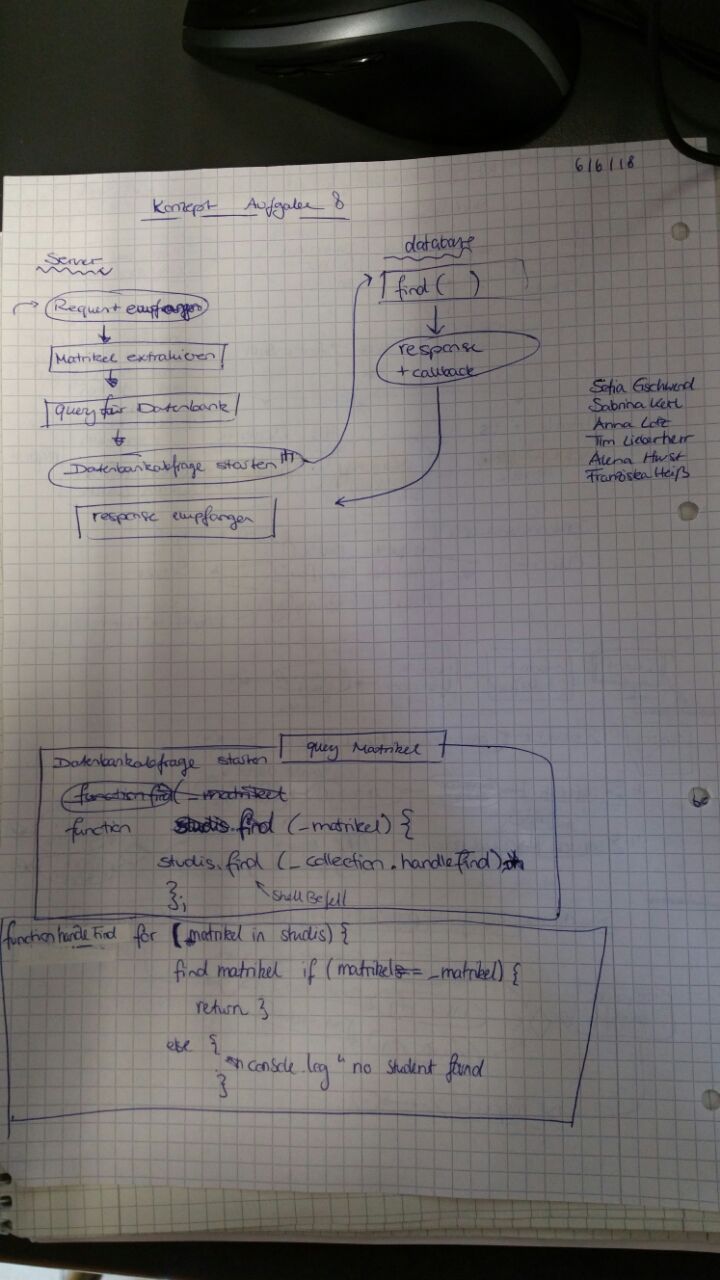 6/6/18
Konzept Aufgabe 8
Server
Request empfangen
Matrikel extrahieren
Query für Datenbank
Datenbankabfrage starten
response empfangen
database
find ( )
response
+ callback
Sofia Gschwend
Sabrina
Anna Lotz
Tim
Alena
Franziska Heiß
query Matrikel
Datenbankabfrage starten
function find (_matrikel) {
studis.find (_collection.handleFind)
Shell Befell
};
function handleFind for (_matrikel in studis) {
find matrikel if (matrikel == _matrikel) {
return }
else {
console.log " no student found
}